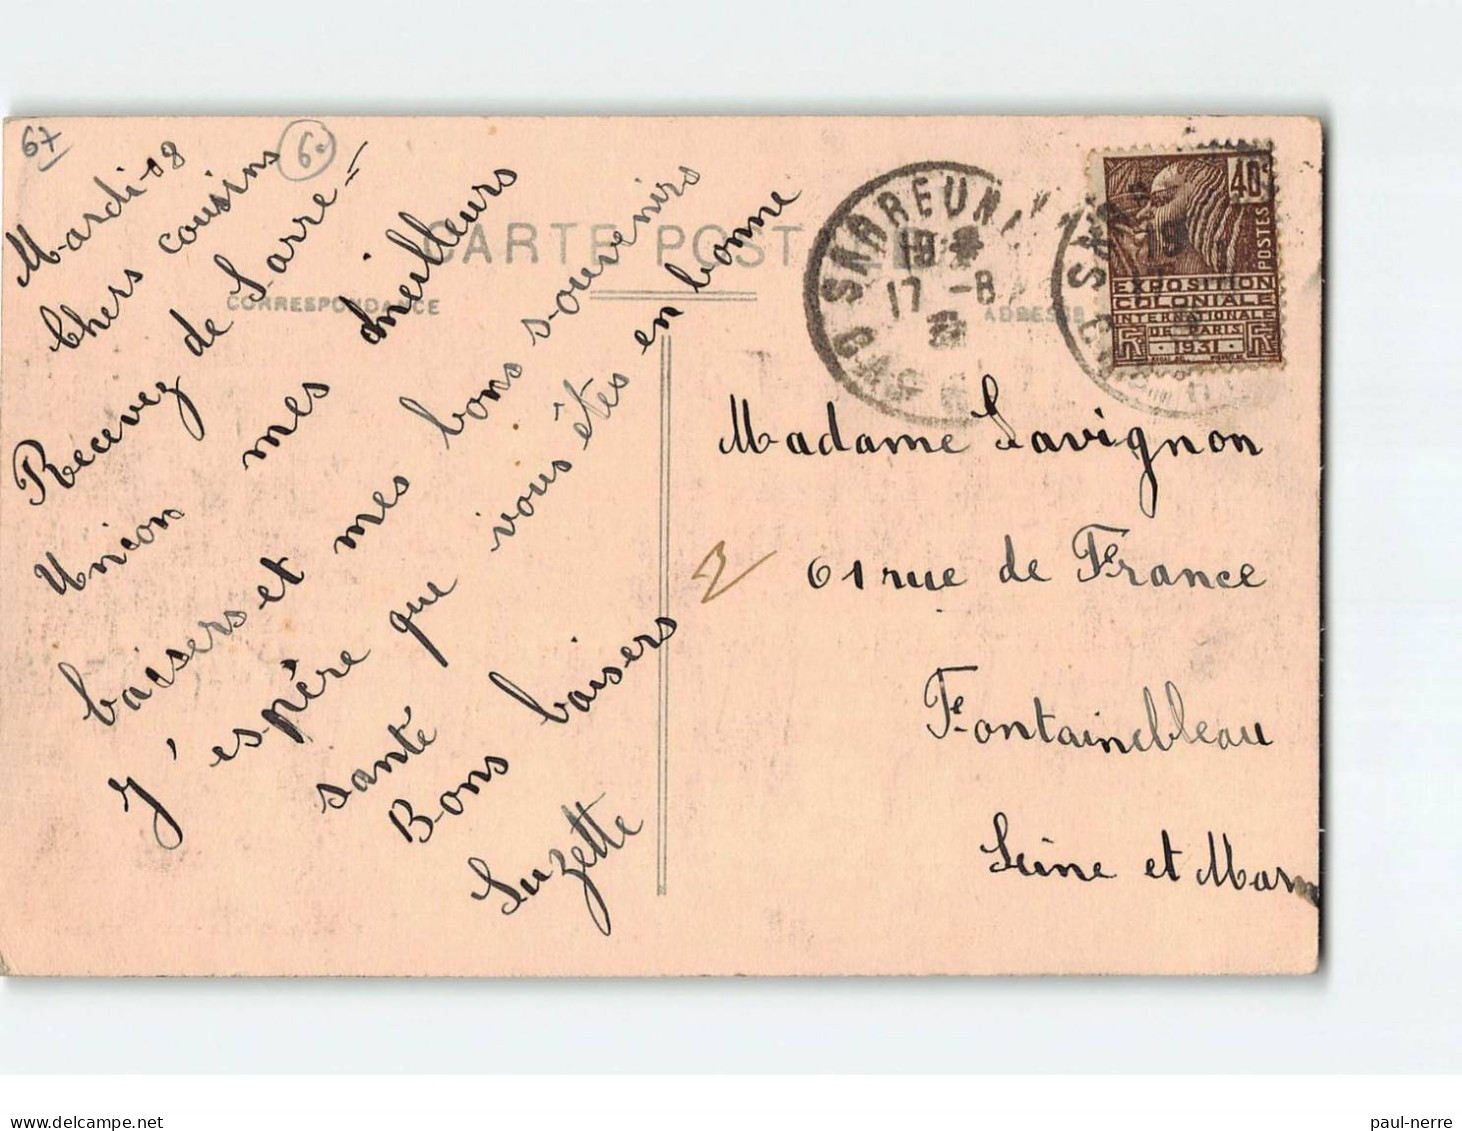 67
60
Mardi 18
Chers cousins
Recevez de Sarre=
Union mes meilleurs
baisers et mes bons souvenirs
J'espère que vous êtes en bonne
santé
Bons baisers
Suzette
CARTE POST
CORRESPONDANCE
ADRESSE
SARREUNI
19
17 -8
40c
POSTES
EXPOSITION
COLONIALE
INTERNATIONALE
DE PARIS
1931
Madame Lavignon
61 rue de France
Fontainebleau
Seine et Marn
2
paul-nerre